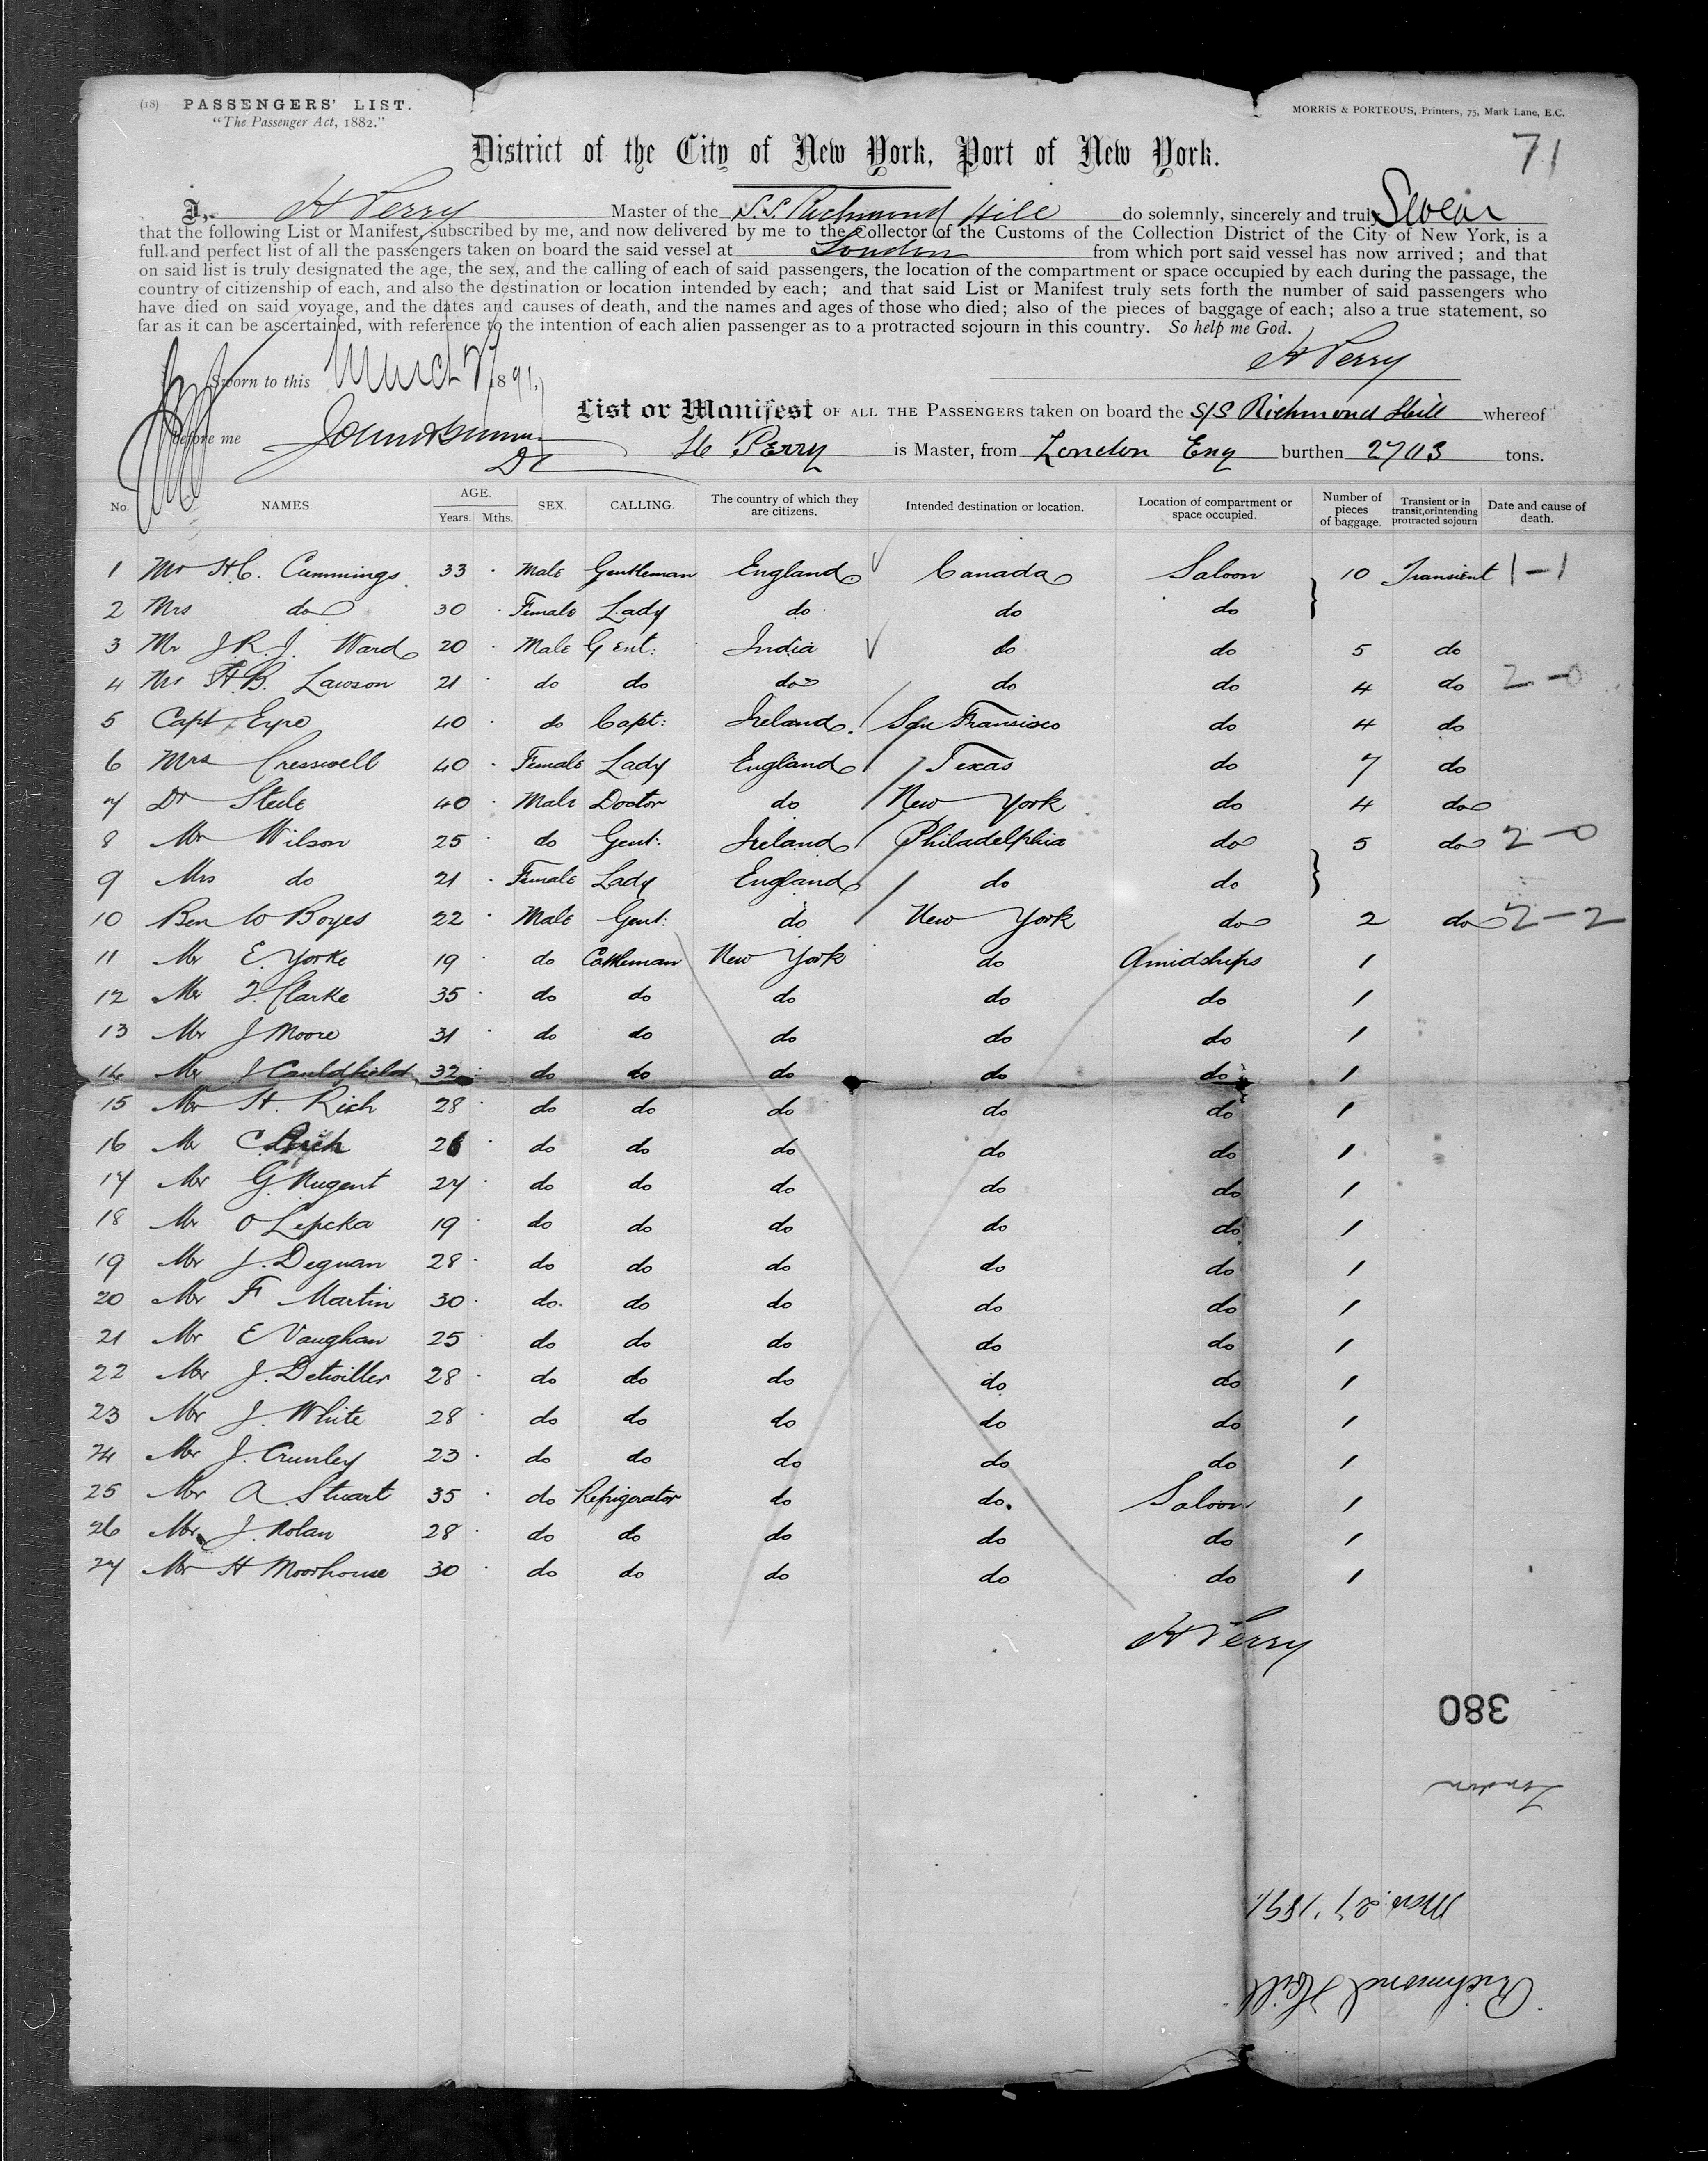 (18) PASSENGERS' LIST.
"The Passenger Act, 1882."
MORRIS & PORTEOUS, Printers, 75, Mark Lane, E.C.
71
District of the City of New York, Port of New York.
I, H Perry Master of the S.S. Richmond Hill do solemnly, sincerely and truly Swear
that the following List or Manifest, subscribed by me, and now delivered by me to the Collector of the Customs of the Collection District of the City of New York, is a
full and perfect list of all the passengers taken on board the said vessel at London from which port said vessel has now arrived; and that
on said list is truly designated the age, the sex, and the calling of each of said passengers, the location of the compartment or space occupied by each during the passage, the
country of citizenship of each, and also the destination or location intended by each; and that said List or Manifest truly sets forth the number of said passengers who
have died on said voyage, and the dates and causes of death, and the names and ages of those who died; also of the pieces of baggage of each; also a true statement, so
far as it can be ascertained, with reference to the intention of each alien passenger as to a protracted sojourn in this country. So help me God.
H Perry
Sworn to this March 27 1891,
List or Manifest OF ALL THE PASSENGERS taken on board the S/S Richmond Hill whereof
before me
H Perry is Master, from London Eng burthen 2703 tons.
No. NAMES. AGE. Years. Mths. SEX. CALLING. The country of which they are citizens. Intended destination or location. Location of compartment or space occupied. Number of pieces of baggage. Transient or in transit, or intending protracted sojourn Date and cause of death.
1 Mr H.C. Cummings 33 Male Gentleman England Canada Saloon 10 Transient 1-1
2 Mrs do 30 Female Lady do do do
3 Mr J.R.J. Ward 20 Male Gent: India do do 5 do
4 Mr H.B. Lawson 21 do do do do do 4 do 2-0
5 Capt Eyre 40 do Capt: Ireland San Fransisco do 4 do
6 Mrs Cresswell 40 Female Lady England Texas do 7 do
7 Dr Steele 40 Male Doctor do New York do 4 do
8 Mr Wilson 25 do Gent: Ireland Philadelphia do 5 do 2-0
9 Mrs do 21 Female Lady England do do
10 Ben W Boyes 22 Male Gent: do New York do 2 do 2-2
11 Mr E. Yorke 19 do Cattleman New York do Amidships 1
12 Mr Clarke 35 do do do do do 1
13 Mr J Moore 31 do do do do do 1
14 Mr J Cauldfield 32 do do do do do 1
15 Mr H. Rich 28 do do do do do 1
16 Mr C. Rich do do do do do 1
17 Mr G. Nugent 27 do do do do do 1
18 Mr O Lepcka 19 do do do do do 1
19 Mr J. Degnan 28 do do do do do 1
20 Mr F Martin 30 do. do do do do 1
21 Mr E Vaughan 25 do do do do do 1
22 Mr J. Detwiller 28 do do do do do 1
23 Mr J. White 28 do do do do do 1
24 Mr J. Crunley 23 do do do do do 1
25 Mr A. Stuart 35 do Refrigerator do do. Saloon 1
26 Mr J. Nolan 28 do do do do do 1
27 Mr H Moorhouse 30 do do do do do 1
H Perry
380
London
Mar. 27, 1891
Richmond Hill